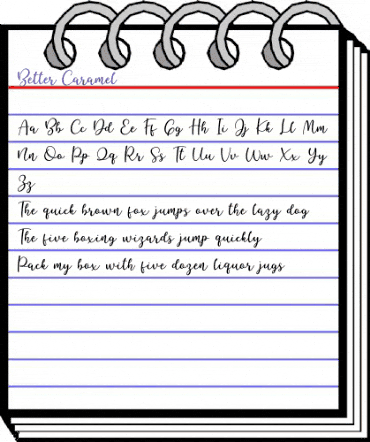 Better Caramel
Aa Bb Cc Dd Ee Ff Gg Hh Ii Jj Kk Ll Mm
Nn Oo Pp Qq Rr Ss Tt Uu Vv Ww Xx Yy
Zz
The quick brown fox jumps over the lazy dog
The five boxing wizards jump quickly
Pack my box with five dozen liquor jugs